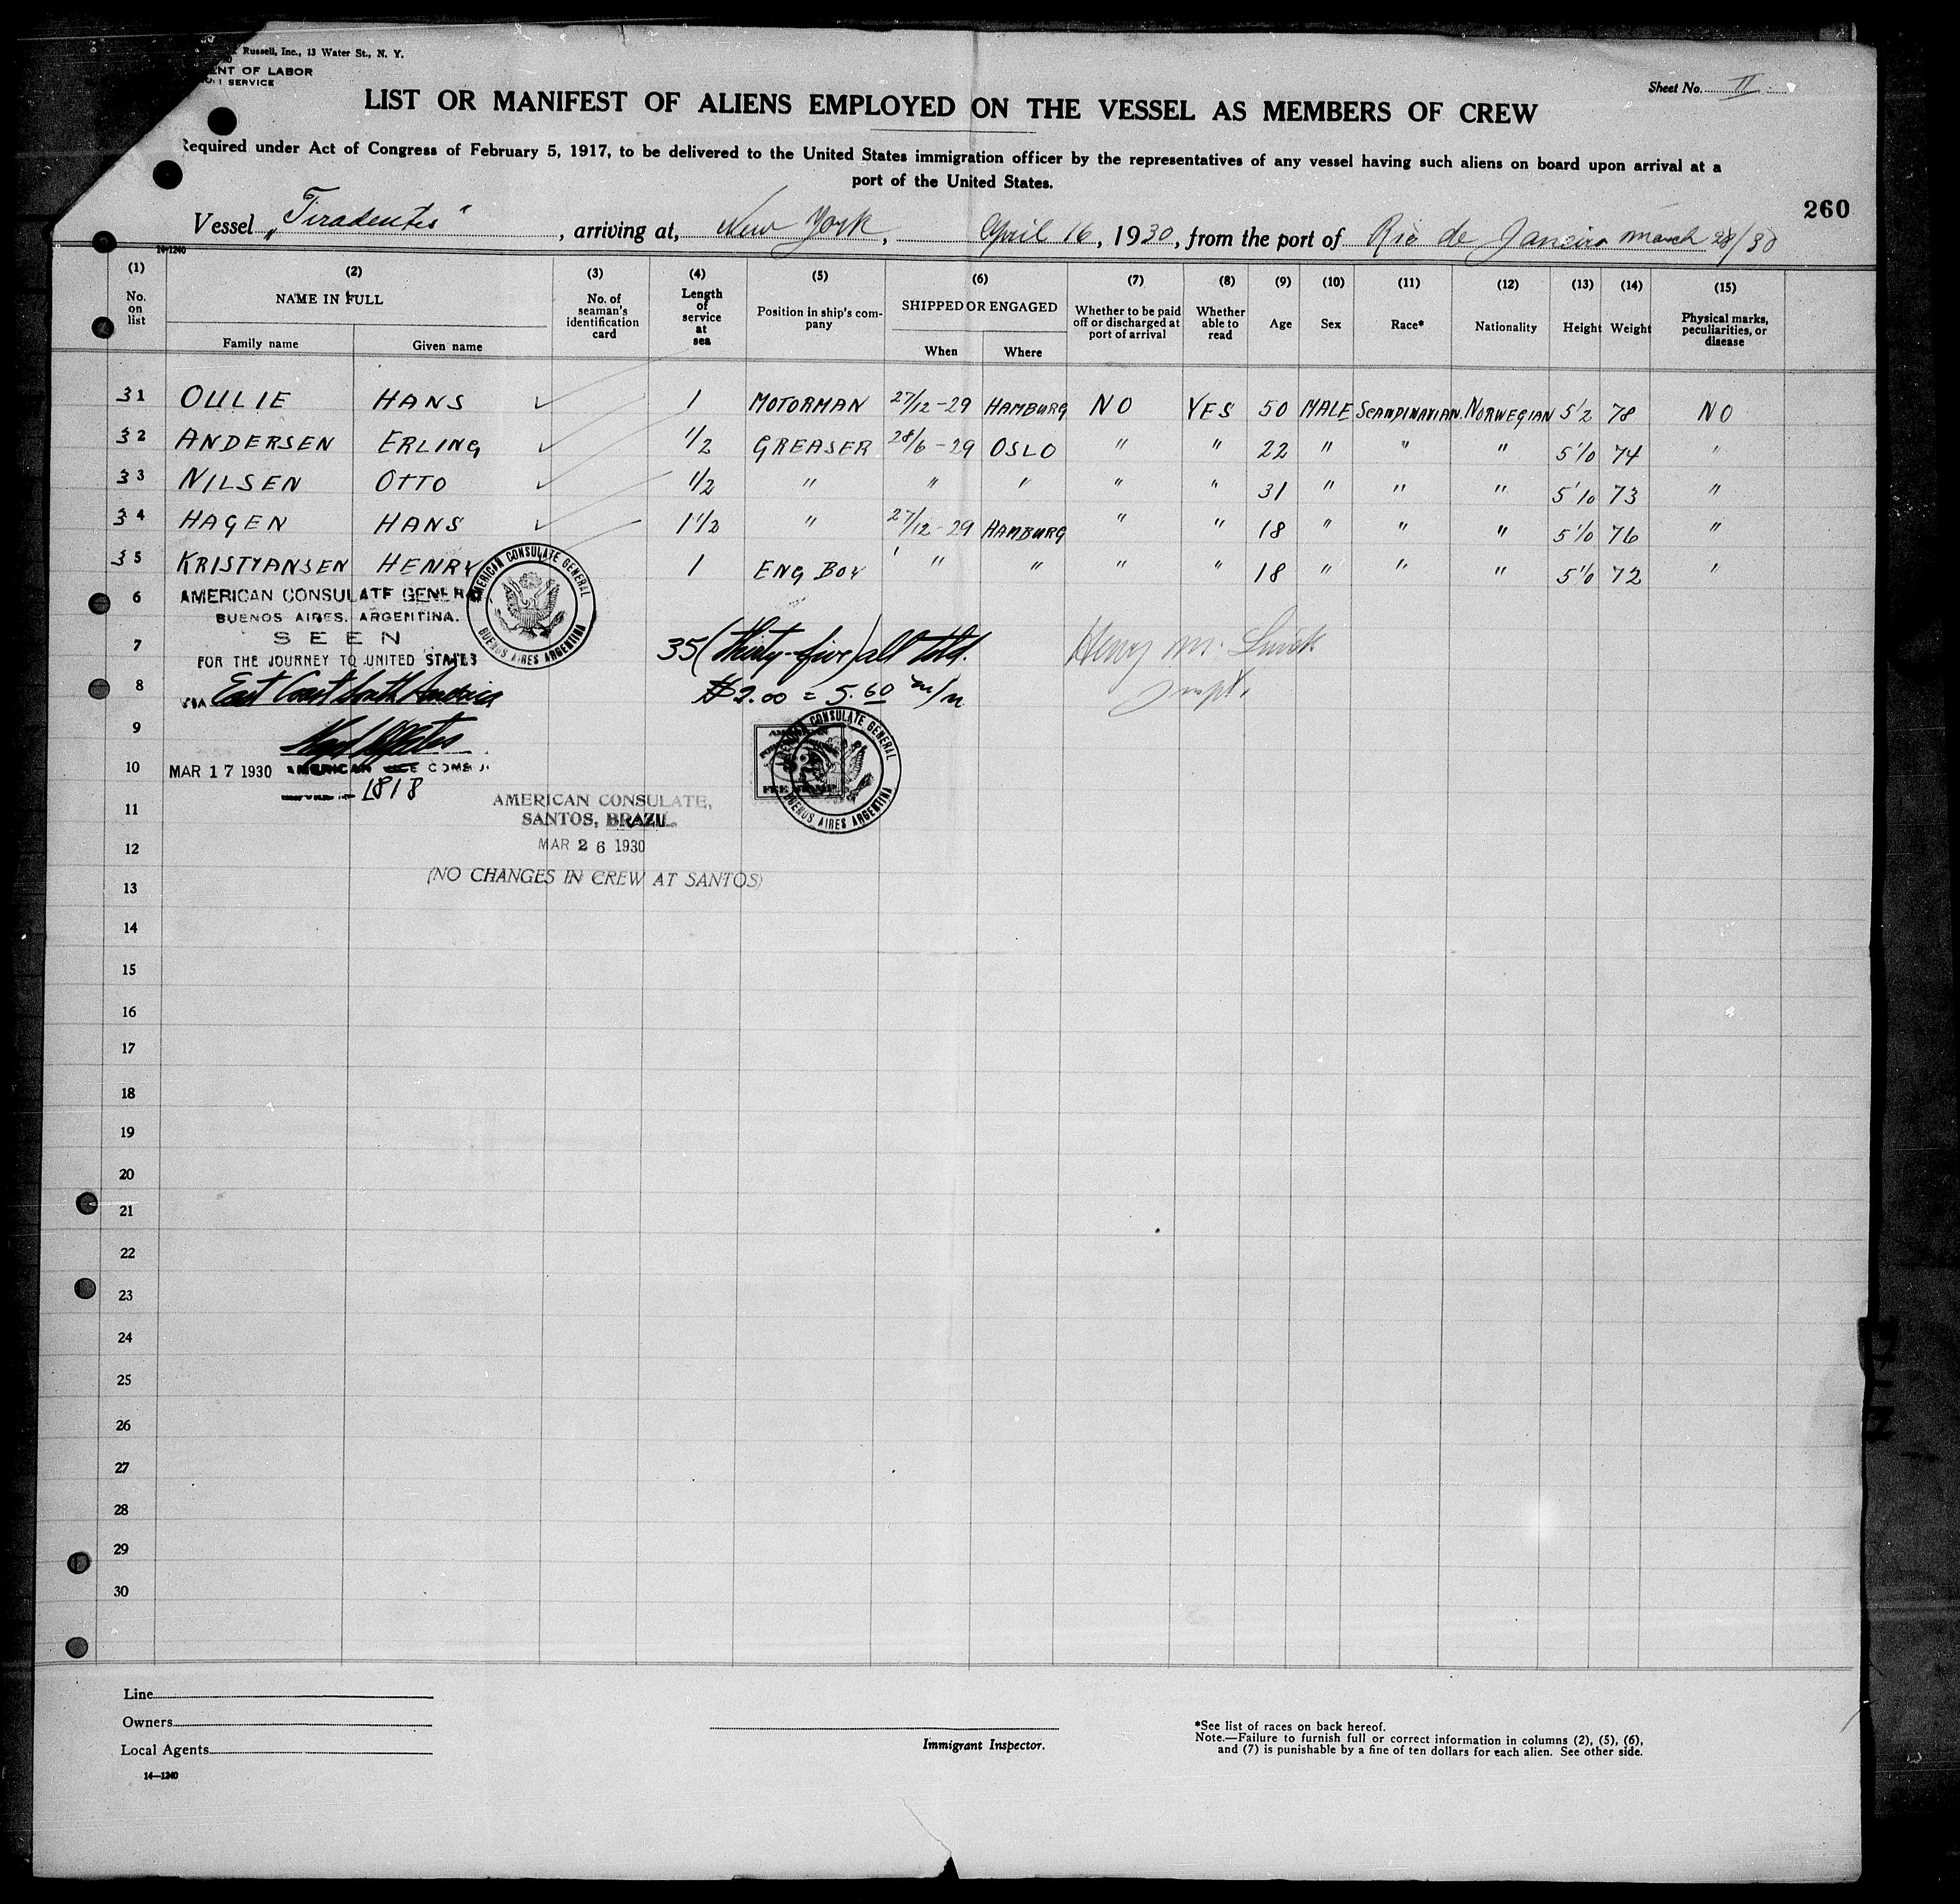 Russell, Inc., 13 Water St., N. Y.
ENT OF LABOR
SERVICE
Sheet No. II
LIST OR MANIFEST OF ALIENS EMPLOYED ON THE VESSEL AS MEMBERS OF CREW
Required under Act of Congress of February 5, 1917, to be delivered to the United States immigration officer by the representatives of any vessel having such aliens on board upon arrival at a
port of the United States.
260
Vessel „Tiradentes", arriving at, New York, April 16, 1930, from the port of Rio de Janeiro march 28/30
14-1240
(1) (2) (3) (4) (5) (6) (7) (8) (9) (10) (11) (12) (13) (14) (15)
No. on list NAME IN FULL Family name Given name No. of seaman's identification card Length of service at sea Position in ship's company SHIPPED OR ENGAGED When Where Whether to be paid off or discharged at port of arrival Whether able to read Age Sex Race* Nationality Height Weight Physical marks, peculiarities, or disease
31 OULIE HANS ✓ 1 MOTORMAN 27/12-29 HAMBURG NO YES 50 MALE SCANDINAVIAN NORWEGIAN 5'2 78 NO
32 ANDERSEN ERLING ✓ 1/2 GREASER 28/6-29 OSLO " " 22 " " " 5'10 74 "
33 NILSEN OTTO ✓ 1/2 " " " " " 31 " " " 5'10 73 "
34 HAGEN HANS ✓ 1 1/2 " 27/12-29 HAMBURG " " 18 " " " 5'10 76 "
35 KRISTYANSEN HENRY 1 ENG BOY " " " " 18 " " " 5'10 72 "
6
AMERICAN CONSULATE GENERA
BUENOS AIRES, ARGENTINA.
AMERICAN CONSULATE GENERAL
BUENOS AIRES ARGENTINA
7
SEEN
FOR THE JOURNEY TO UNITED STATES
35 (Thirty-five) all told.
Henry M.
8
VIA East Coast South America
$2.00 = 5.60 m/n
9
10
MAR 17 1930 AMERICAN VICE CONSUL
1818
AMERICAN CONSULATE GENERAL
BUENOS AIRES ARGENTINA
FEE STAMP
11
AMERICAN CONSULATE,
SANTOS, BRAZIL.
12
MAR 26 1930
13
(NO CHANGES IN CREW AT SANTOS)
14
15
16
17
18
19
20
21
22
23
24
25
26
27
28
29
30
Line
Owners
Local Agents
14—1240
Immigrant Inspector.
*See list of races on back hereof.
Note.—Failure to furnish full or correct information in columns (2), (5), (6),
and (7) is punishable by a fine of ten dollars for each alien. See other side.